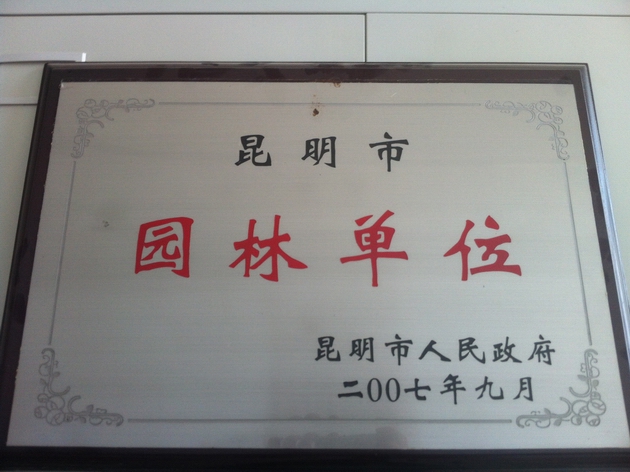 昆明市
园林单位
昆明市人民政府
二00七年九月